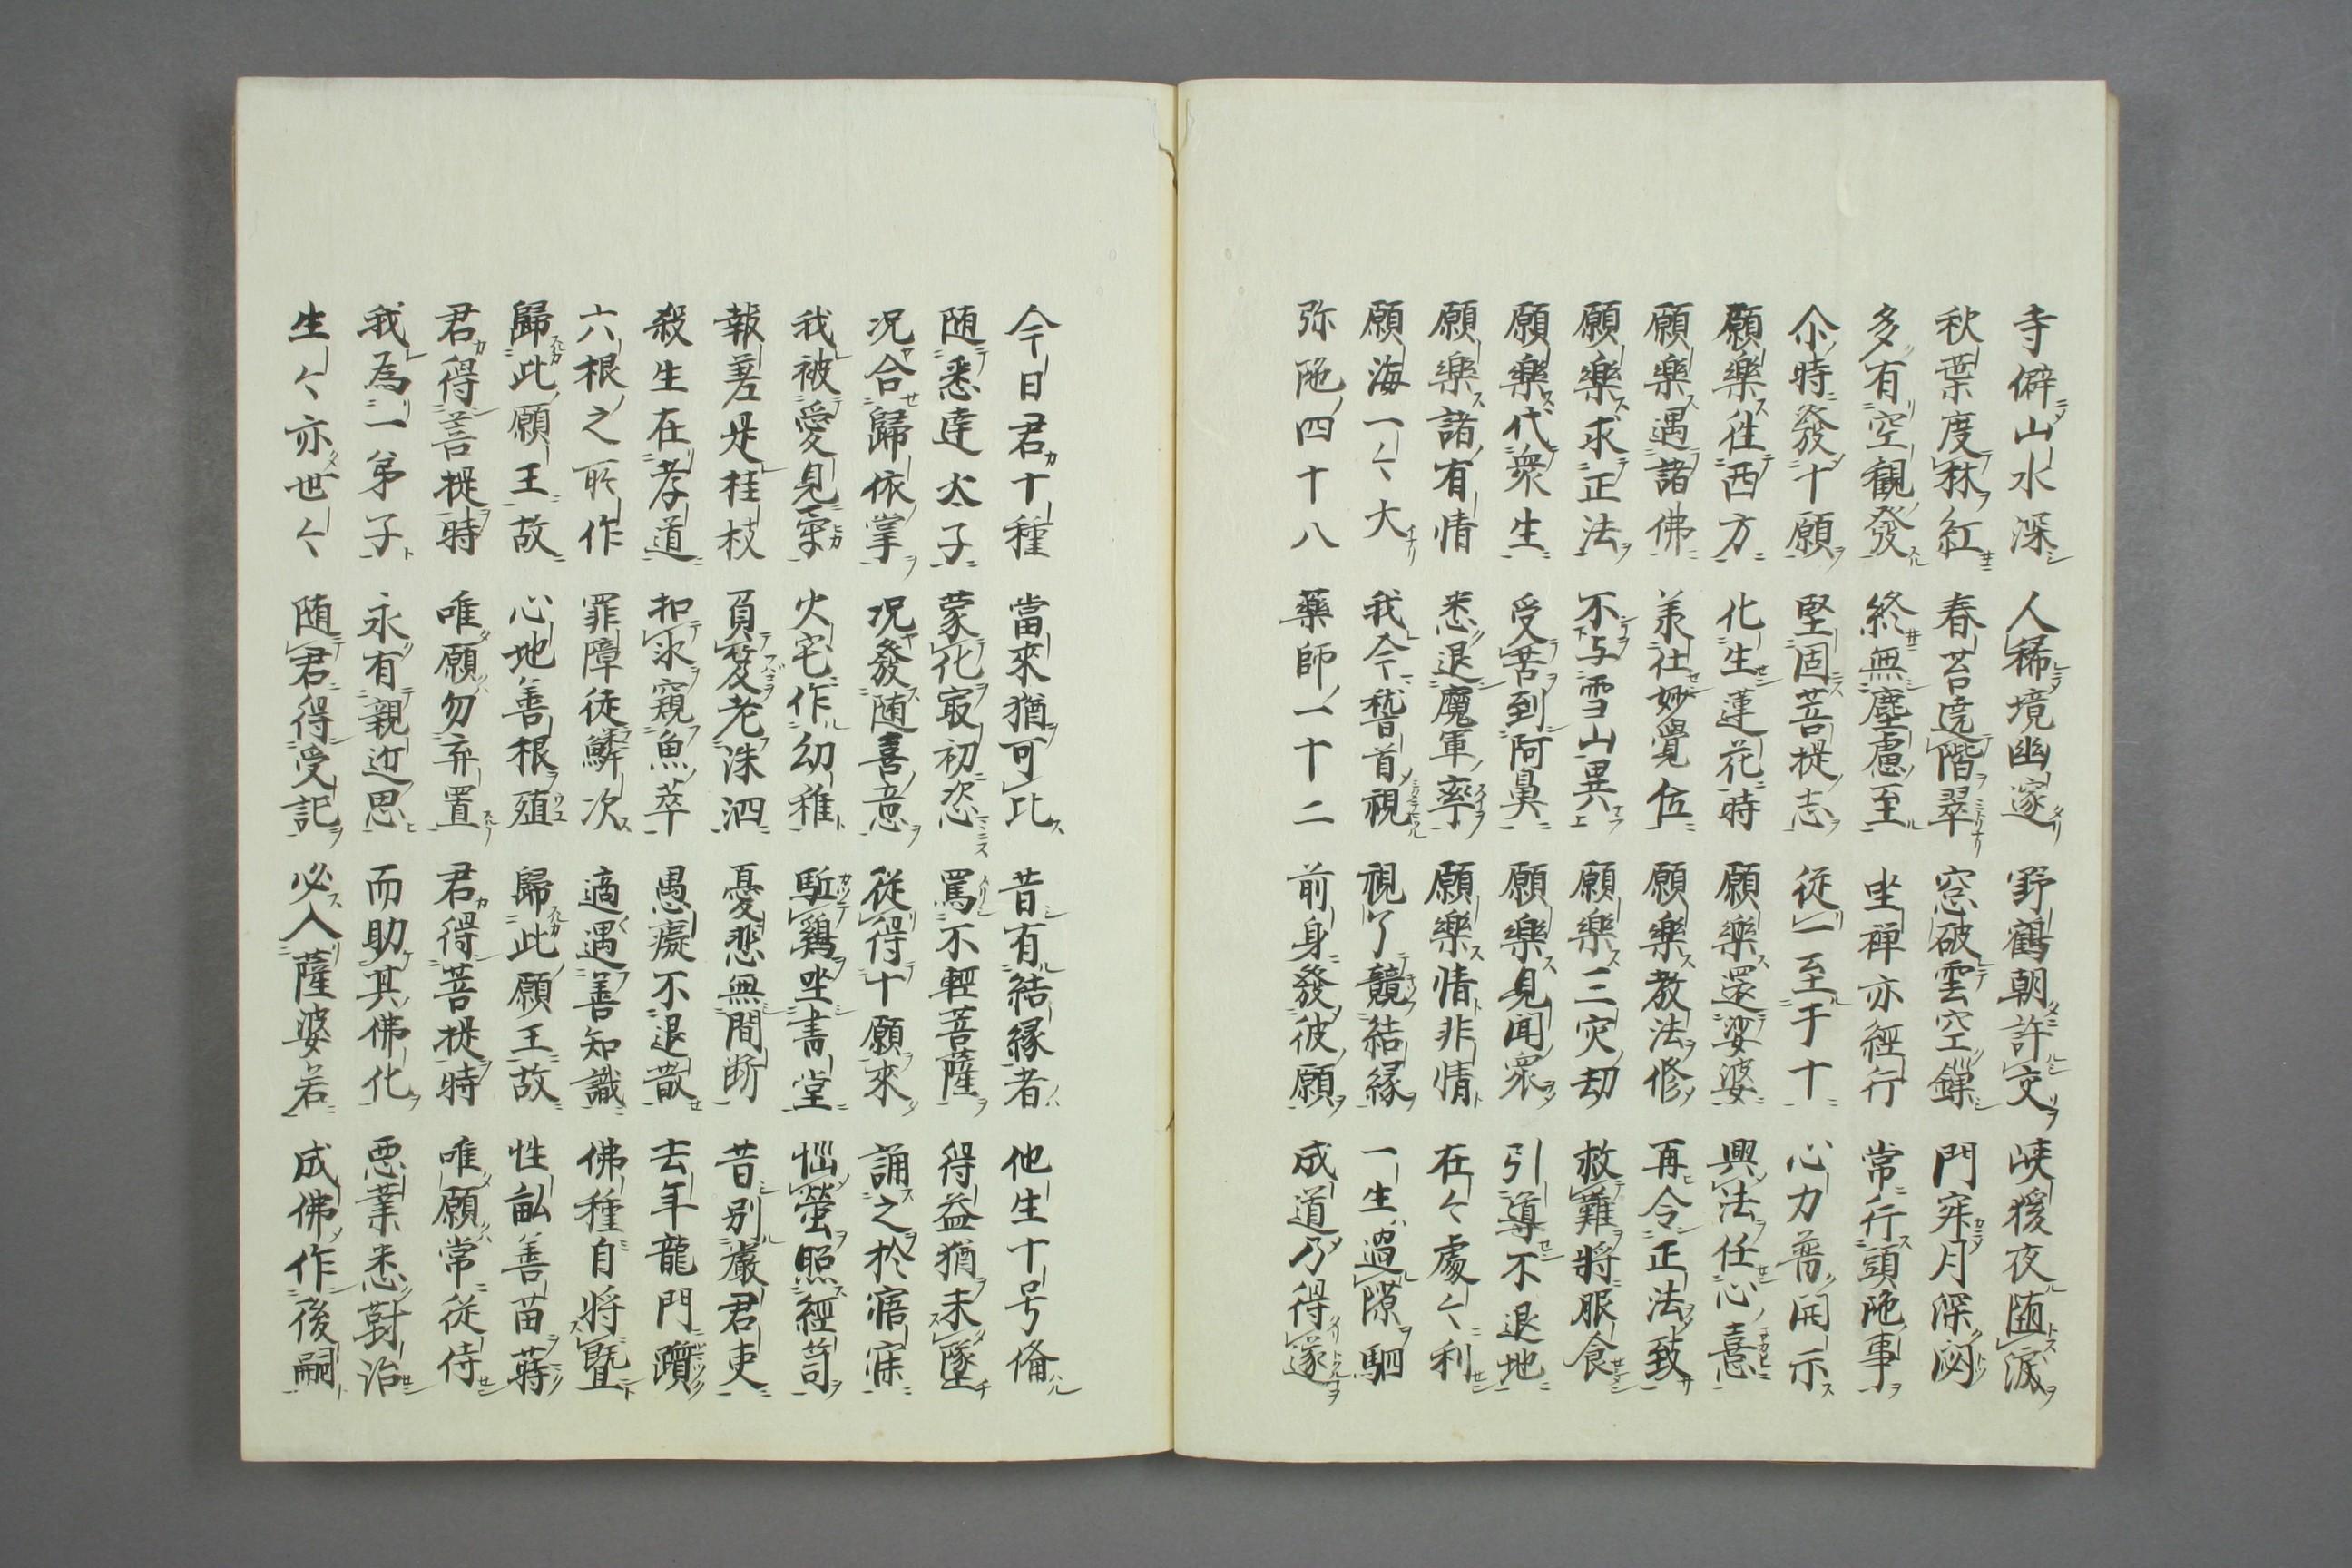 寺僻山水深 人稀境幽邃 野鶴朝許交 峽猨夜随淚
秋葉度林紅 春苔遶階翠 窓破雲空鏁 門寂月深閟
多有空觀發 終無塵慮至 坐禅亦經行 常行頭陁事
尒時發十願 堅固菩提志 従一至于十 心力普開示
願樂徃西方 化生蓮花時 願樂還娑婆 興法任心憙
願樂遇諸佛 羕仕妙覺位 願樂教法修 再令正法致
願樂求正法 不与雪山異 願樂三灾劫 救難将服食
願樂代衆生 受苦到阿鼻 願樂見聞衆 引導不退地
願樂諸有情 悉退魔軍率 願樂情非情 在〻處〻利
願海一〻大 我今稽首視 視了競結縁 一生過隙駟
弥陁四十八 藥師一十二 前身發彼願 成道乃得遂
今日君十種 當來猶可比 昔有結縁者 他生十号俻
随悉達太子 蒙化冣初恣 罵不輕菩薩 得益猶未墜
况合歸依掌 况發随喜意 従得十願來 誦之於寤寐
我被愛見牽 火宅作幼稚 駈鷄坐書堂 拙螢照經笥
報善是桂枝 負笈老洙泗 憂悲無間断 昔別嚴君吏
殺生在孝道 扣氷窺魚萃 愚癡不退散 去年龍門躓
六根之所作 罪障徒鱗次 適遇善知識 佛種自将曁
歸此願王故 心地善根殖 歸此願王故 性畝善苗蒔
君得菩提時 唯願勿弃置 君得菩提時 唯願常従侍
我為一弟子 永有親近思 而助其佛化 悪業悉對治
生〻亦世〻 随君得受記 必入薩婆若 成佛作後嗣